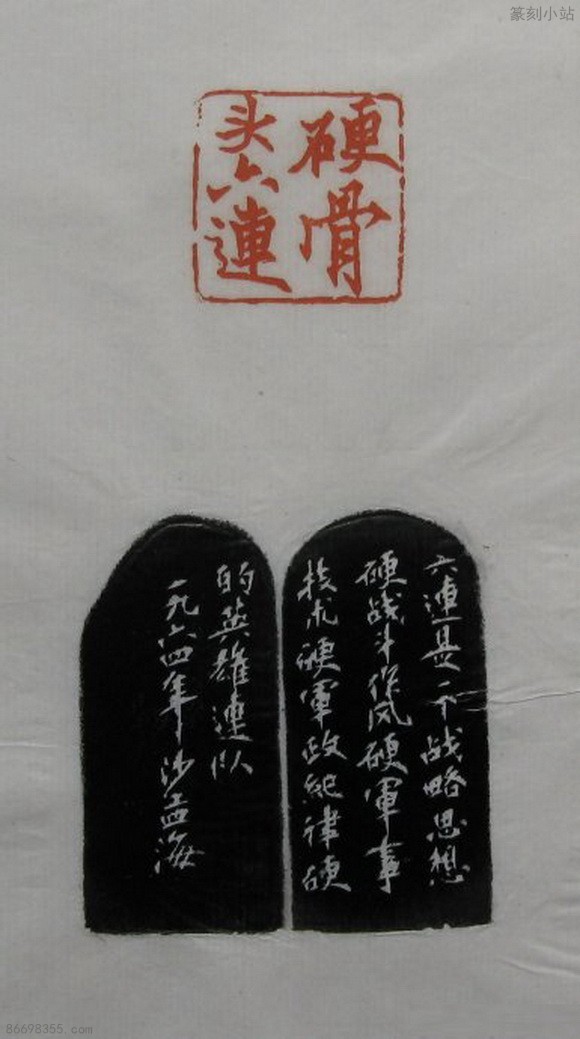 篆刻小站
硬骨
头六連
六連是一个战略思想
硬战斗作风硬軍事
技术硬軍政纪律硬
的英雄連队
一九六四年沙孟海
86698355.com